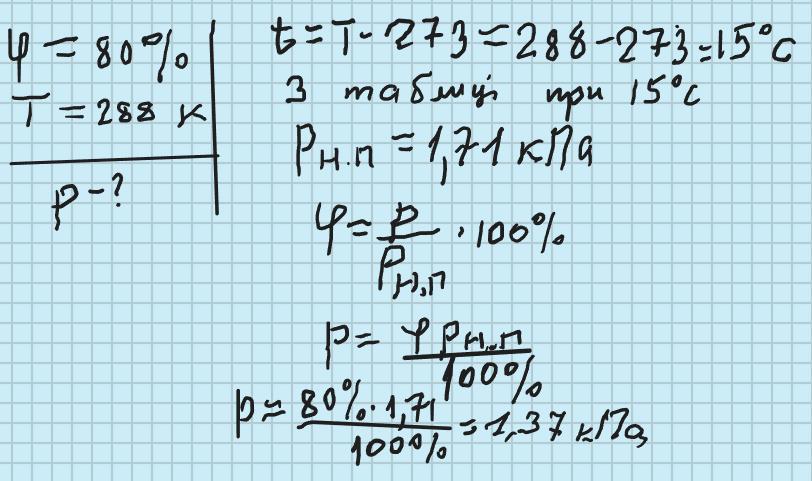 φ = 80%
T = 288 К
p - ?
t = T - 273 = 288 - 273 = 15°C
З таблиці при 15°C
Pн.п = 1,71 кПа
φ = p / Pн.п · 100%
p = φ Pн.п / 100%
p = 80% · 1,71 / 100% = 1,37 кПа